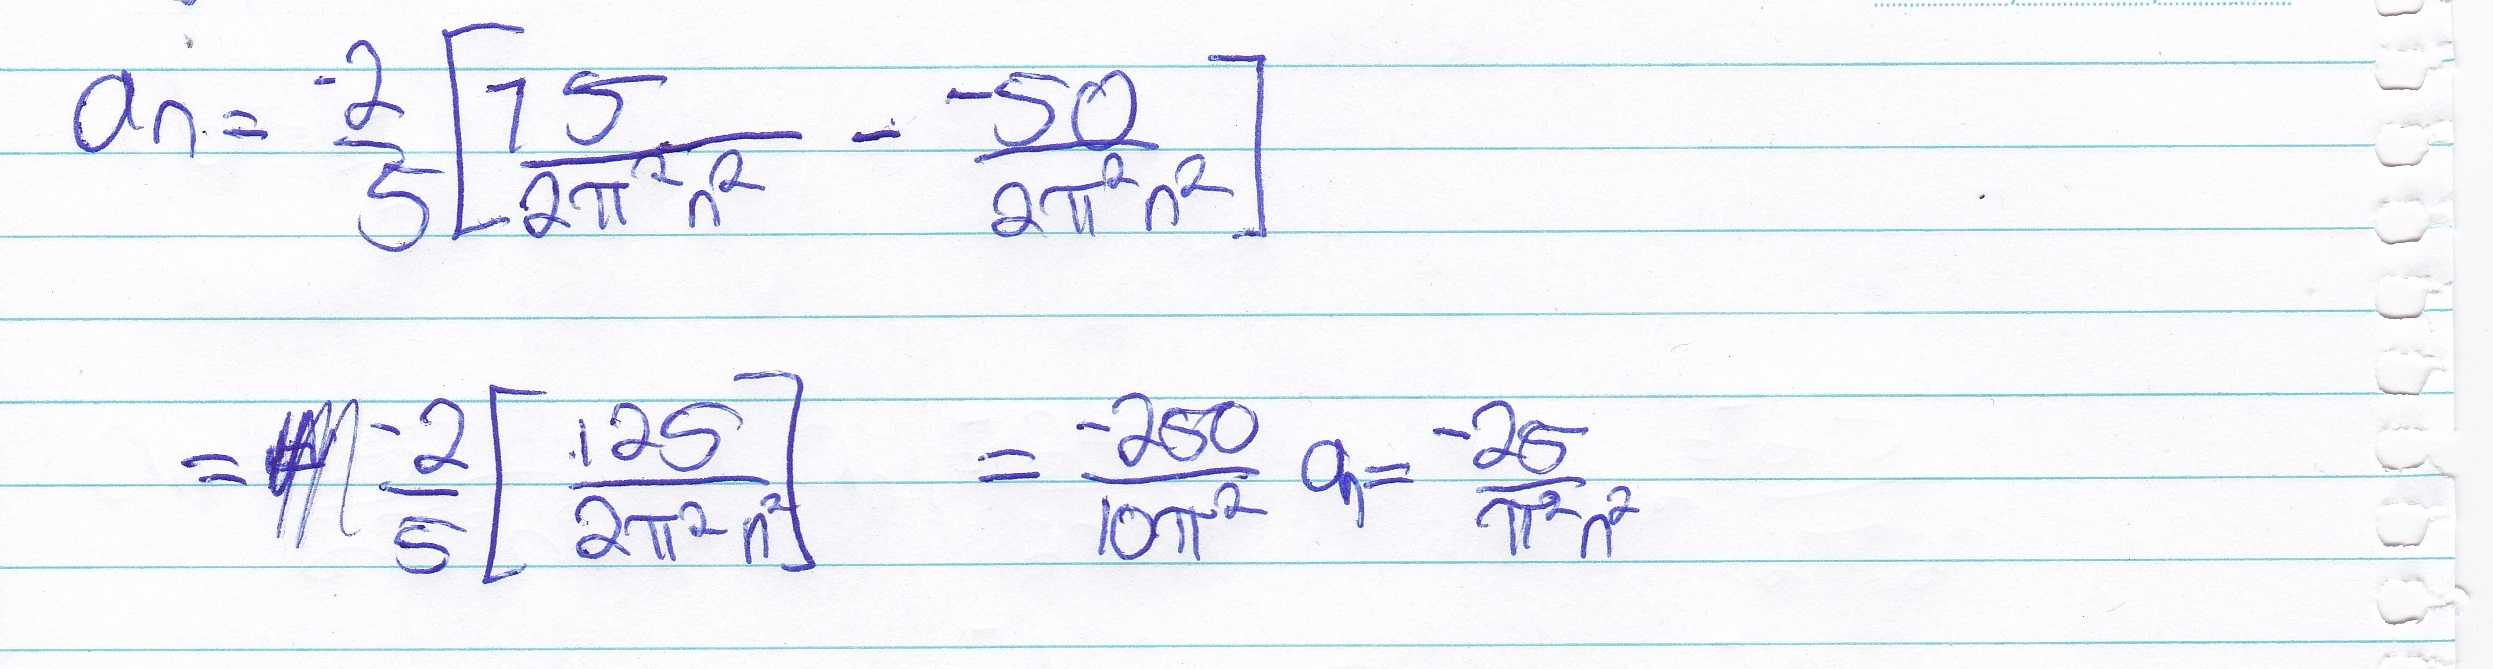 aₙ = -2/5 [75/2π²n² - -50/2π²n²]
= -2/5 [125/2π²n²] = -250/10π² aₙ = -25/π²n²